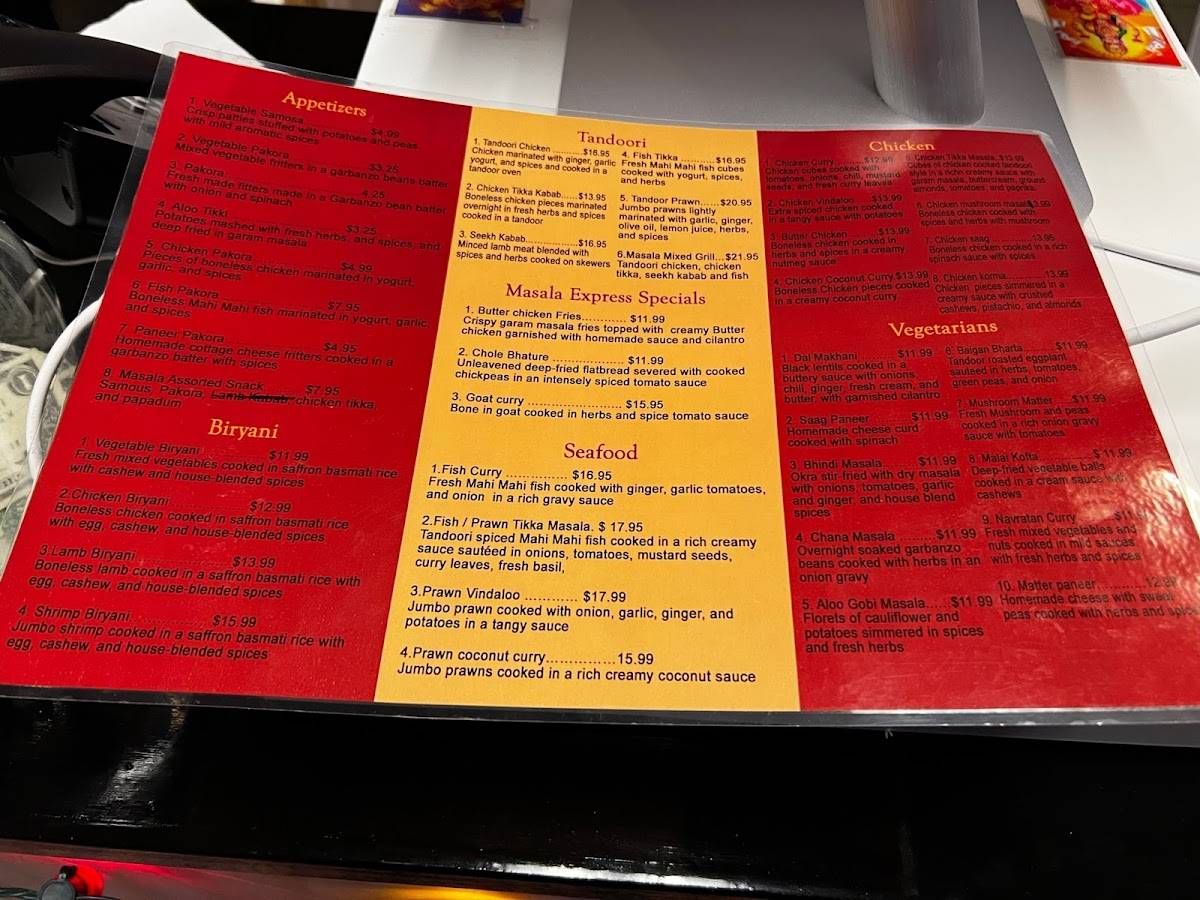 Appetizers
1. Vegetable Samosa............$4.99
Crisp patties stuffed with potatoes and peas,
with mild aromatic spices
2. Vegetable Pakora............$3.25
Mixed vegetable fritters in a garbanzo beans batter
3. Pakora............4.25
Fresh made fitters made in a Garbanzo bean batter
with onion and spinach
4. Aloo Tikki............$3.25
Potatoes mashed with fresh herbs, and spices, and
deep fried in garam masala
5. Chicken Pakora............$4.99
Pieces of boneless chicken marinated in yogurt,
garlic, and spices
6. Fish Pakora............$7.95
Boneless Mahi Mahi fish marinated in yogurt, garlic,
and spices
7. Paneer Pakora............$4.95
Homemade cottage cheese fritters cooked in a
garbanzo batter with spices
8. Masala Assorted Snack........$7.95
Samous, Pakora, Lamb Kabab, chicken tikka,
and papadum
Biryani
1. Vegetable Biryani............$11.99
Fresh mixed vegetables cooked in saffron basmati rice
with cashew and house-blended spices
2.Chicken Biryani............$12.99
Boneless chicken cooked in saffron basmati rice
with egg, cashew, and house-blended spices
3.Lamb Biryani............$13.99
Boneless lamb cooked in a saffron basmati rice with
egg, cashew, and house-blended spices
4. Shrimp Biryani............$15.99
Jumbo shrimp cooked in a saffron basmati rice with
egg, cashew, and house-blended spices
Tandoori
1. Tandoori Chicken .........$16.95
Chicken marinated with ginger, garlic
yogurt, and spices and cooked in a
tandoor oven
2. Chicken Tikka Kabab.....$13.95
Boneless chicken pieces marinated
overnight in fresh herbs and spices
cooked in a tandoor
3. Seekh Kabab................$16.95
Minced lamb meat blended with
spices and herbs cooked on skewers
4. Fish Tikka ...........$16.95
Fresh Mahi Mahi fish cubes
cooked with yogurt, spices,
and herbs
5. Tandoor Prawn......$20.95
Jumbo prawns lightly
marinated with garlic, ginger,
olive oil, lemon juice, herbs,
and spices
6.Masala Mixed Grill...$21.95
Tandoori chicken, chicken
tikka, seekh kabab and fish
Masala Express Specials
1. Butter chicken Fries............ $11.99
Crispy garam masala fries topped with creamy Butter
chicken garnished with homemade sauce and cilantro
2. Chole Bhature ................... $11.99
Unleavened deep-fried flatbread severed with cooked
chickpeas in an intensely spiced tomato sauce
3. Goat curry ......................... $15.95
Bone in goat cooked in herbs and spice tomato sauce
Seafood
1.Fish Curry .............. $16.95
Fresh Mahi Mahi fish cooked with ginger, garlic tomatoes,
and onion in a rich gravy sauce
2.Fish / Prawn Tikka Masala. $ 17.95
Tandoori spiced Mahi Mahi fish cooked in a rich creamy
sauce sautéed in onions, tomatoes, mustard seeds,
curry leaves, fresh basil,
3.Prawn Vindaloo ............ $17.99
Jumbo prawn cooked with onion, garlic, ginger, and
potatoes in a tangy sauce
4.Prawn coconut curry...............15.99
Jumbo prawns cooked in a rich creamy coconut sauce
Chicken
1. Chicken Curry........$12.99
Chicken cubes cooked with
tomatoes, onions, chili, mustard
seeds, and fresh curry leaves
2. Chicken Vindaloo .....$13.99
Extra spiced chicken cooked
in a tangy sauce with potatoes
3. Butter Chicken .........$13.99
Boneless chicken cooked in
herbs and spices in a creamy
nutmeg sauce
4. Chicken Coconut Curry $13.99
Boneless Chicken pieces cooked
in a creamy coconut curry
5. Chicken Tikka Masala. $13.99
Cubes of chicken cooked tandoori
style in a richn creamy sauce with
garam masala, buttercream, ground
almonds, tomatoes, and paprika
6. Chicken mushroom masala
Boneless chicken cooked with
spices and herbs with mushroom
7. Chicken saag ..............13.95
Boneless chicken cooked in a rich
spinach sauce with spices
8. Chicken korma.............13.99
Chicken pieces simmered in a
creamy sauce with crushed
cashews, pistachio, and almonds
Vegetarians
1. Dal Makhani ......... $11.99
Black lentils cooked in a
buttery sauce with onions,
chili, ginger, fresh cream, and
butter, with garnished cilantro
2. Saag Paneer .........$11.99
Homemade cheese curd
cooked with spinach
3. Bhindi Masala........ $11.99
Okra stir-fried with dry masala
with onions, tomatoes, garlic
and ginger, and house blend
spices
4. Chana Masala .........$11.99
Overnight soaked garbanzo
beans cooked with herbs in an
onion gravy
5. Aloo Gobi Masala......$11.99
Florets of cauliflower and
potatoes simmered in spices
and fresh herbs
6. Baigan Bharta........$11.99
Tandoor roasted eggplant
sauteed in herbs, tomatoes,
green peas, and onion
7. Mushroom Matter ....$11.99
Fresh Mushroom and peas
cooked in a rich onion gravy
sauce with tomatoes
8. Malai Kofta.............$ 11.99
Deep-fried vegetable balls
cooked in a cream sauce with
cashews
9. Navratan Curry
Fresh mixed vegetables and
nuts cooked in mild sauces
with fresh herbs and spices
10. Matter paneer...........12.99
Homemade cheese with sweet
peas cooked with herbs and spice